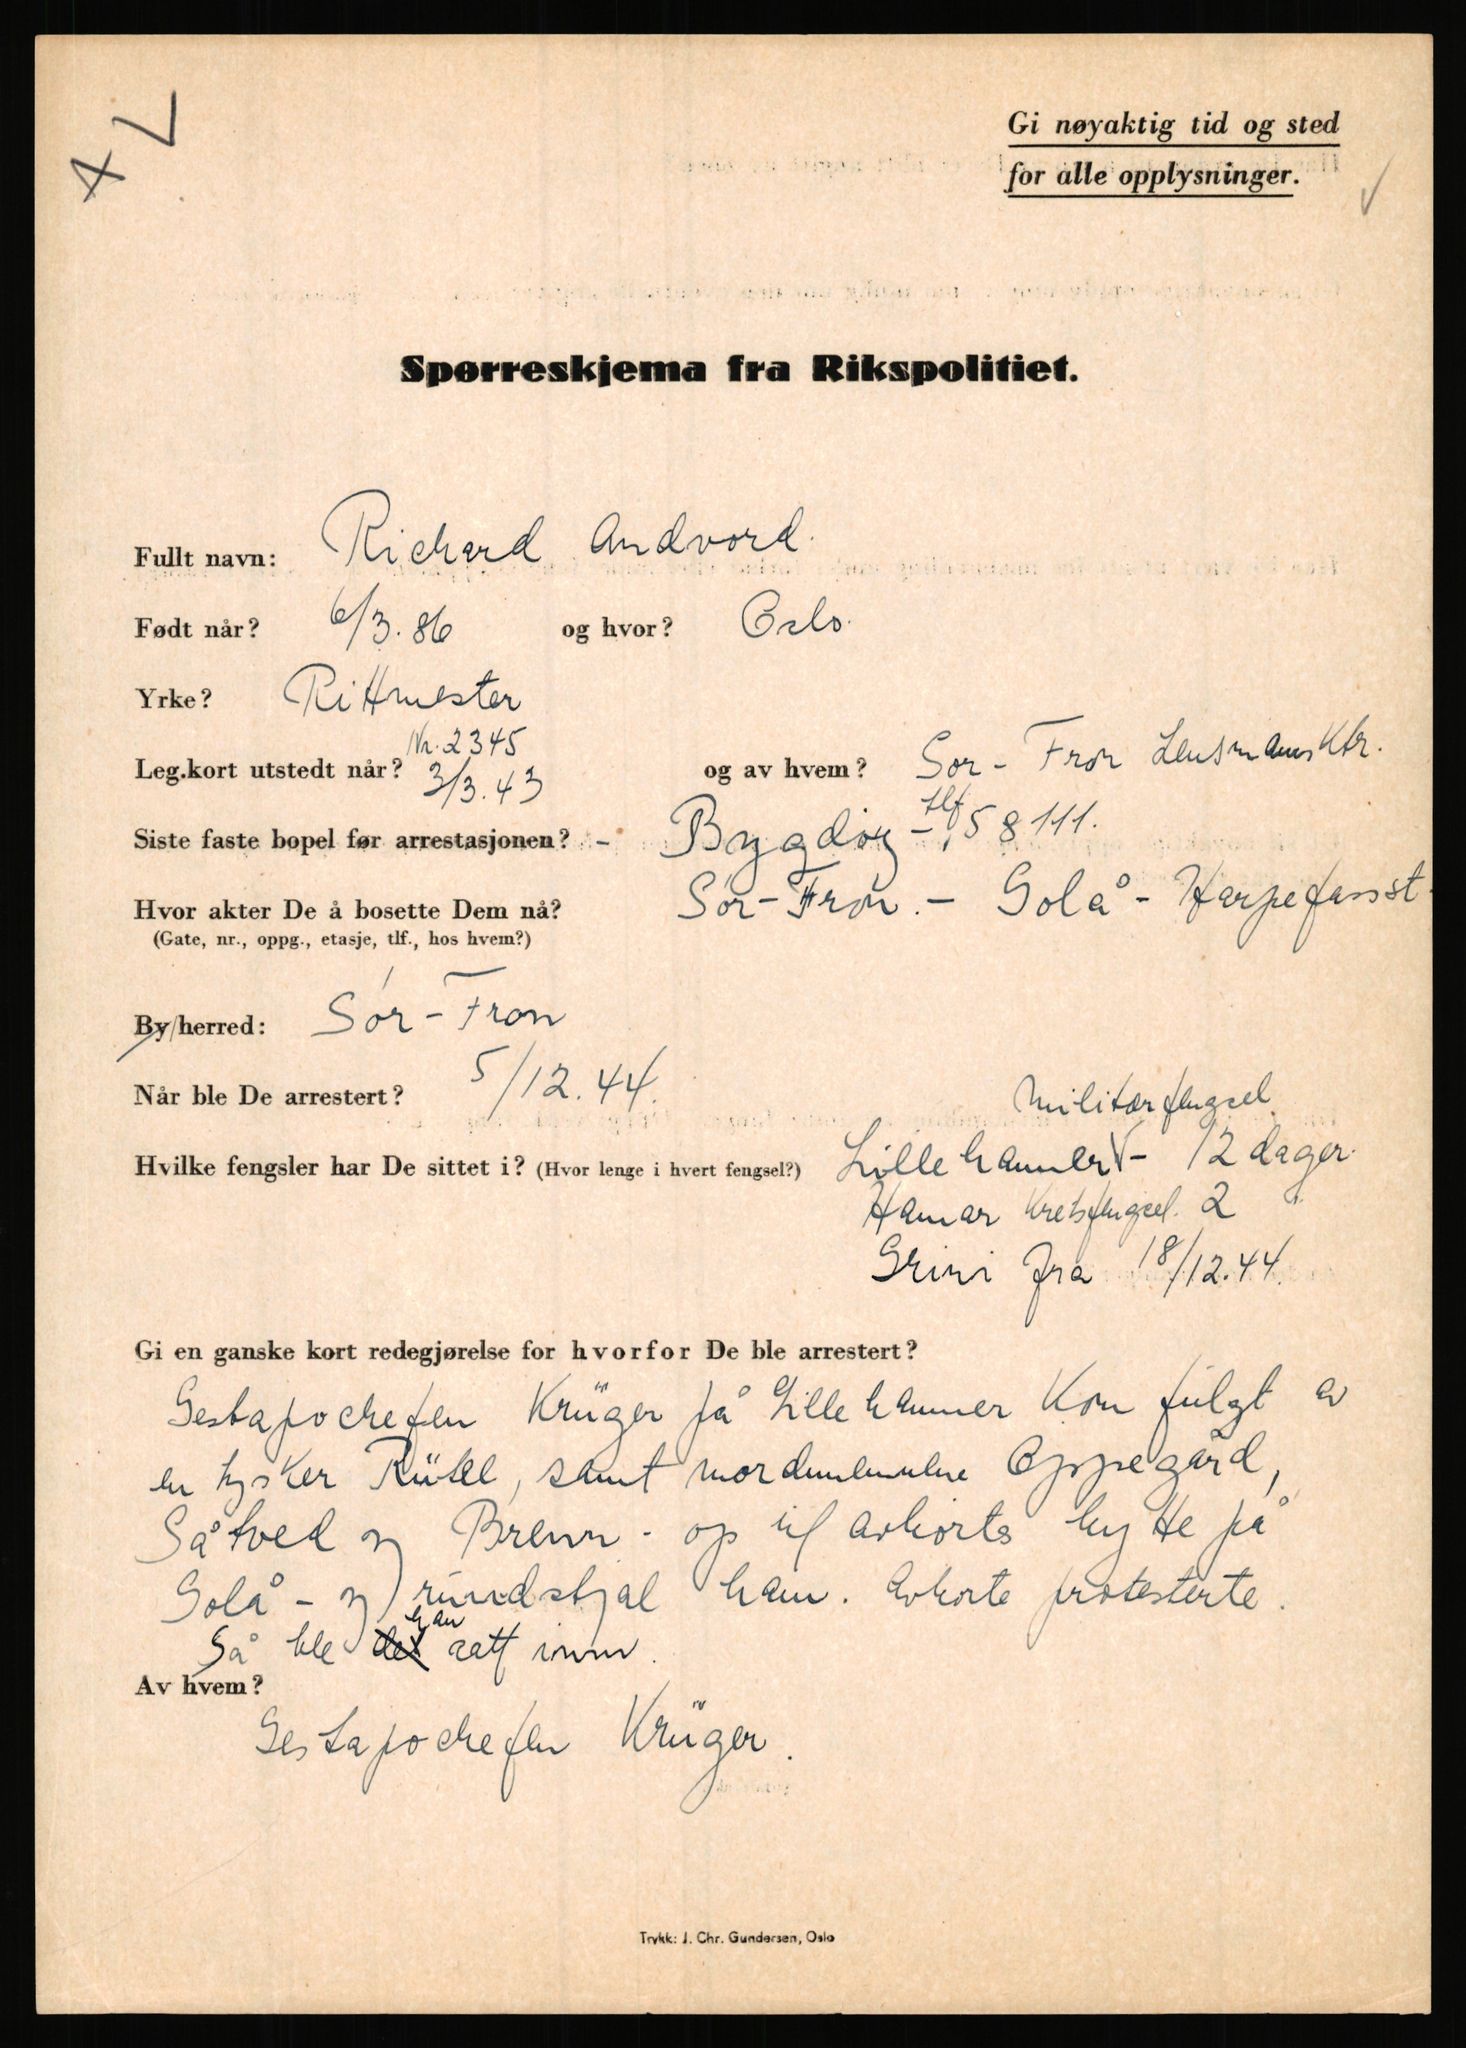 4 V
Gi nøyaktig tid og sted
for alle opplysninger.
Spørreskjema fra Rikspolitiet.
Fullt navn: Richard Andvord.
Født når? 6/3. 86 og hvor? Oslo.
Yrke? Rittmester
Nr. 2345
Leg.kort utstedt når? 3/3. 43 og av hvem? Sør-Fron Lensmannsktr.
Siste faste bopel før arrestasjonen? - Bygdøy - tlf 58111.
Hvor akter De å bosette Dem nå? Sør-Fron. - Golå - Harpefosst.
(Gate, nr., oppg., etasje, tlf., hos hvem?)
By/herred: Sør-Fron
Når ble De arrestert? 5/12. 44.
Militærfengsel.
Hvilke fengsler har De sittet i? (Hvor lenge i hvert fengsel?) Lillehammer - 12 dager.
Hamar Kretsfengsel. 2 "
Grini fra 18/12.44.
Gi en ganske kort redegjørelse for hvorfor De ble arrestert?
Gestapochefen Krüger på Lillehammer kom fulgt av
en tysker, samt Oppegård,
Såtved og Brenn - op til avhørte hytte på
Golå - og rundstjal ham. Avhørte protesterte.
Så ble det han satt inn.
Av hvem?
Gestapochefen Krüger.
Trykk: J. Chr. Gundersen, Oslo